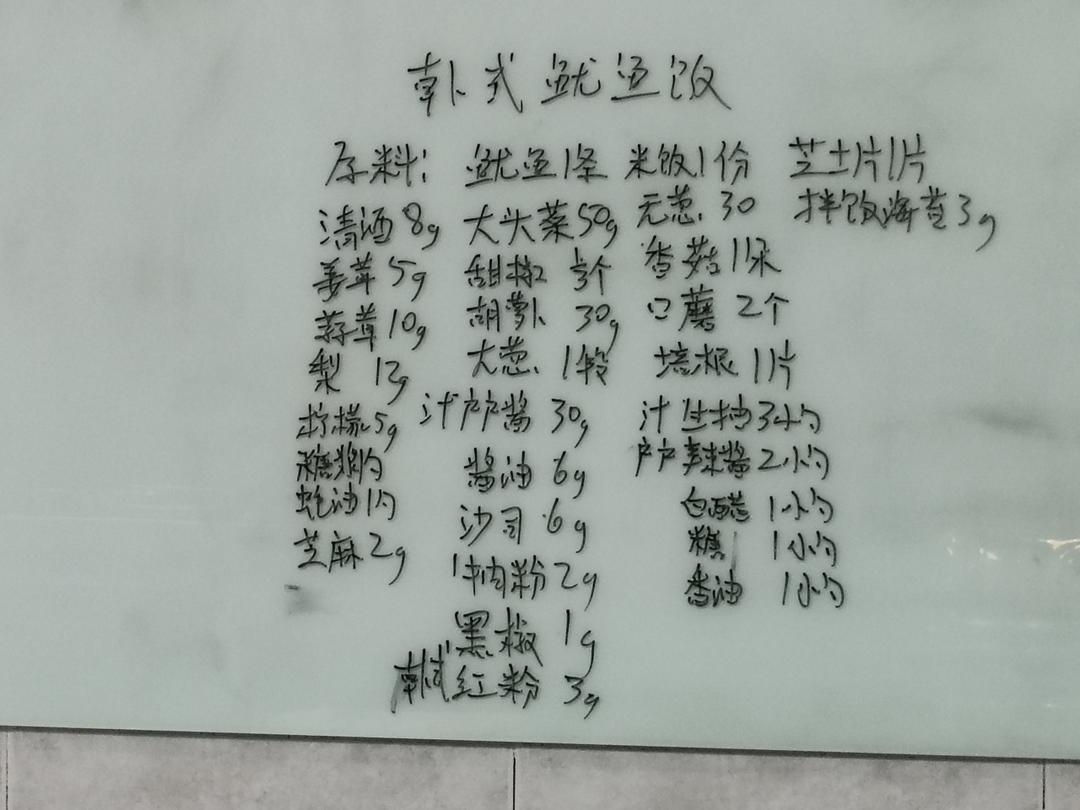 韩式鱿鱼饭
原料: 鱿鱼1条 米饭1份 芝士片1片
清酒8g 大头菜50g 元葱30 拌饭海苔3g
姜茸5g 甜椒 半个 香菇1朵
蒜茸10g 胡萝卜 30g 口蘑 2个
梨 12g 大葱 1段 培根 1片
柠檬5g 汁 戸戸酱 30g 汁 生抽3小勺
糖浆1勺 酱油 6g 戸戸辣酱2小勺
蚝油1勺 沙司 6g 白醋 1小勺
芝麻2g 牛肉粉2g 糖 1小勺
黑椒 1g 香油 1小勺
韩式红粉 3g